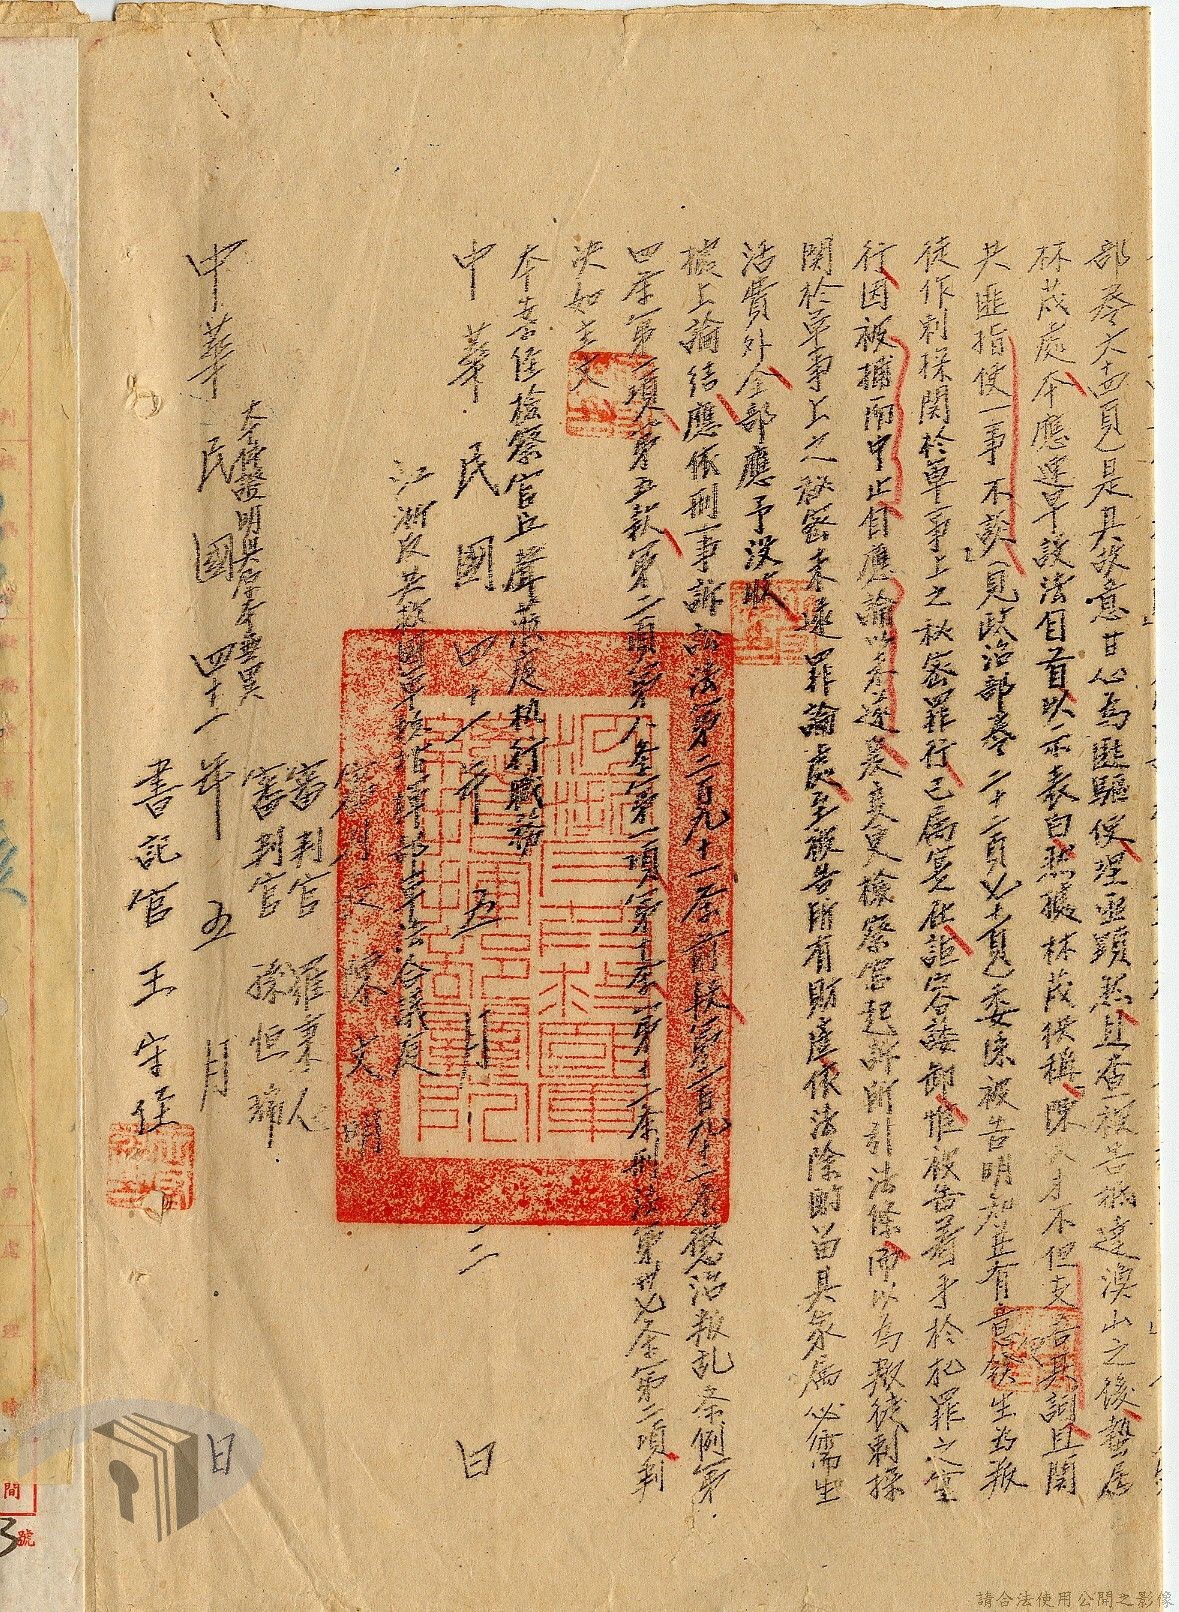 部卷大十四頁)是其故意甘心為匪驅使理亟顯然且查被告抵達漁山之後蟄居
林茂處本應遑早設法自首以示表白然據林茂供稱陳 不但支吾其詞且関
共匪指使一事不談(見政治部卷二十二頁 頁)委 被告明知並有意發生為叛
徒作刺探関於軍事上之秘密罪行已属實在詎容諉卸惟被告着手於犯罪之實
行因被捕而中止自應論以未遂 變更檢察官起訴所引法條而以為叛徒刺探
関於軍事上之秘密未遂罪論處至被告所有財產依法除酌留其家属必需生
活費外全部應予沒收
據上論結應依刑事訴訟法第二百九十一條前段第二百九十二條懲治叛乱条例第
四條第一項第五款第二項第八條第一項第十條第十一條刑法第卅七条第二項判
決如主文
本案經檢察官丘聲 蒞庭執行職務
中華民國四十一年五月二日
江浙反共救國軍總指揮部軍法合議庭
審判長 陳文明
審判官 羅秉人
審判官 孫恒
本件證明與原本無異
中華民國四十一年五月日
書記官 王守任
間
號
3
請合法使用公開之影像